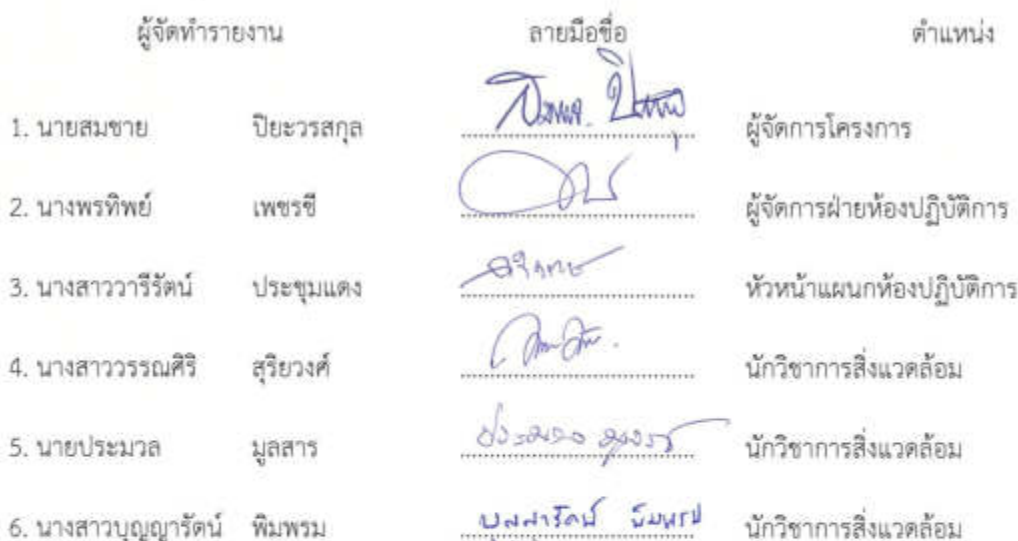 ผู้จัดทำรายงาน ลายมือชื่อ ตำแหน่ง
1. นายสมชาย ปิยะวรสกุล ผู้จัดการโครงการ
2. นางพรทิพย์ เพชรชี ผู้จัดการฝ่ายห้องปฏิบัติการ
3. นางสาววารีรัตน์ ประชุมแดง หัวหน้าแผนกห้องปฏิบัติการ
4. นางสาววรรณศิริ สุริยวงศ์ นักวิชาการสิ่งแวดล้อม
5. นายประมวล มูลสาร ประมวล มูลสาร นักวิชาการสิ่งแวดล้อม
6. นางสาวบุญญารัตน์ พิมพรม บุญญารัตน์ พิมพรม นักวิชาการสิ่งแวดล้อม